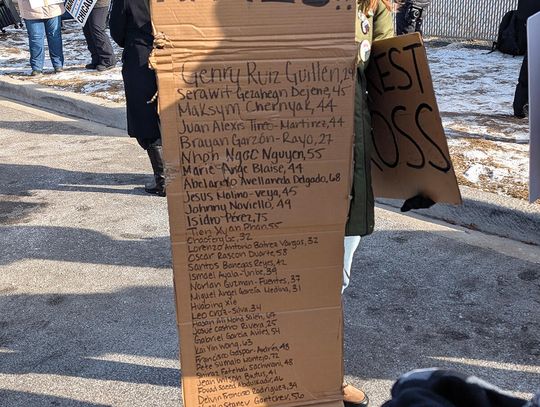 CHICAG
Genry Ruiz Guillén, 29
Serawit Gezahegn Dejene, 45
Maksym Chernyak, 44
Juan Alexis Tineo-Martinez, 44
Brayan Garzón-Rayo, 27
Nhon Ngoc Nguyen, 55
Marie Ange Blaise, 44
Abelardo Avellaneda Delgado, 68
Jesus Molina-Veya, 45
Johnny Noviello, 49
Isidro Pérez, 75
Tien Xuan Phan, 55
Chaofeng Ge, 32
Lorenzo Antonio Batrez Vargas, 32
Oscar Rascon Duarte, 58
Santos Banegas Reyes, 42
Ismael Ayala-Uribe, 39
Norlan Guzman-Fuentes, 37
Miguel Ángel García Medina, 31
Huabing Xie
Leo Cruz-Silva, 34
Hasan Ali Moh'd Saleh, 67
Josue Castro Rivera, 25
Gabriel Garcia Aviles, 54
Kai Yin Wong, 63
Francisco Gaspar-Andrés, 48
Pete Sumalo Montejo, 72
Shiraz Fatehali Sachwani, 48
Jean Wilson Brutus, 41
Fouad Saeed Abdulkadir, 46
Delvin Francisco Rodriguez, 39
Nenko Stanev Gantchev, 56
REST
OSS